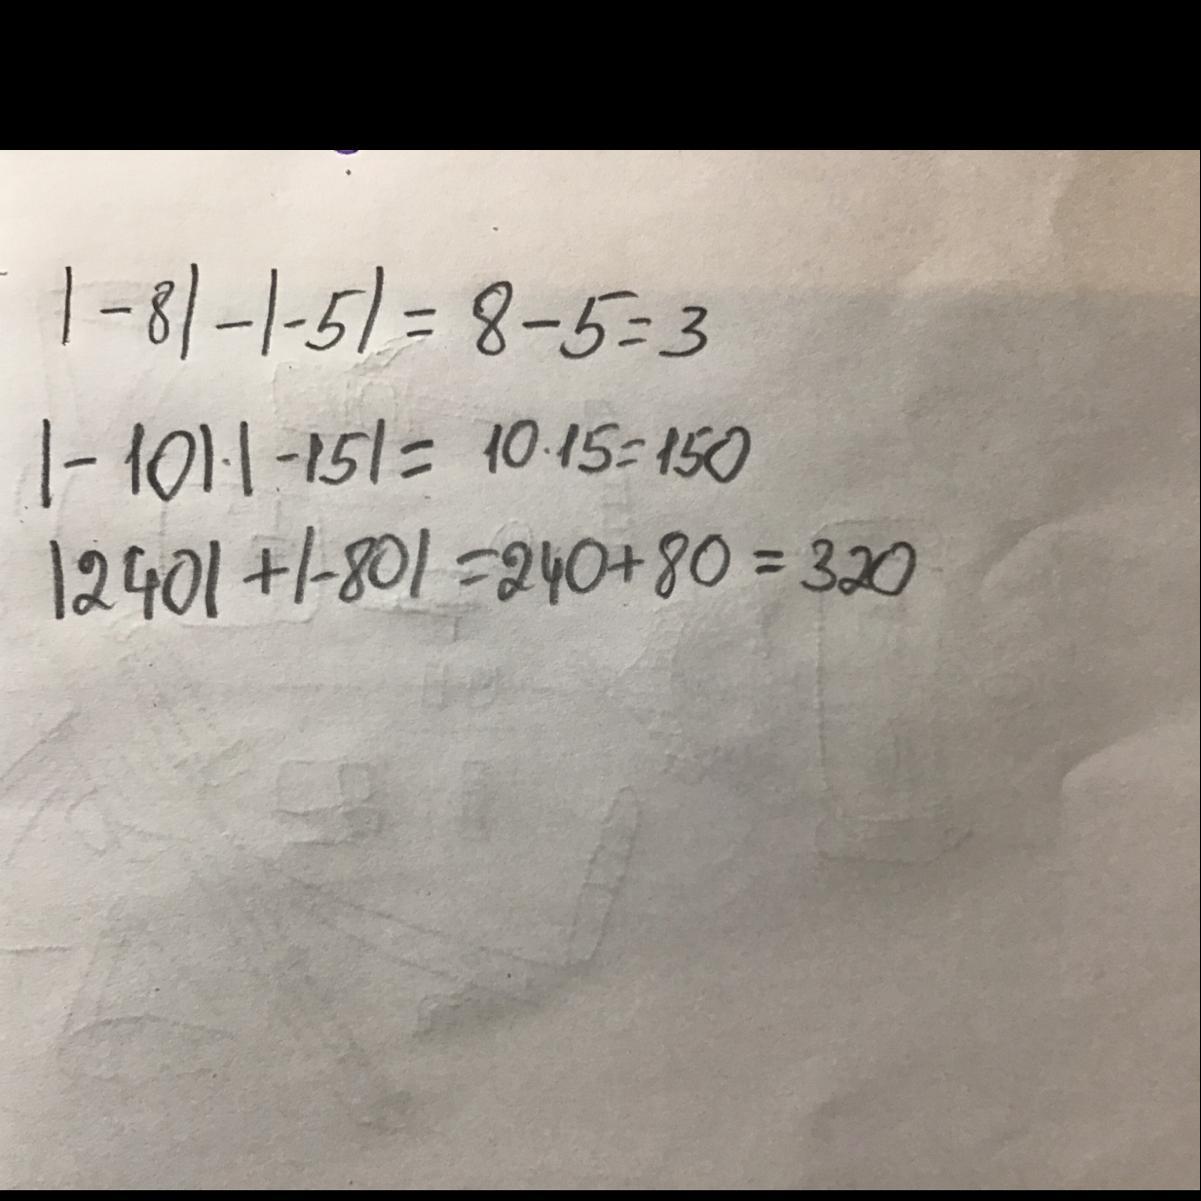 |-8|-|-5|= 8-5=3
|-10|·|-15|= 10·15=150
|240|+|-80|=240+80=320